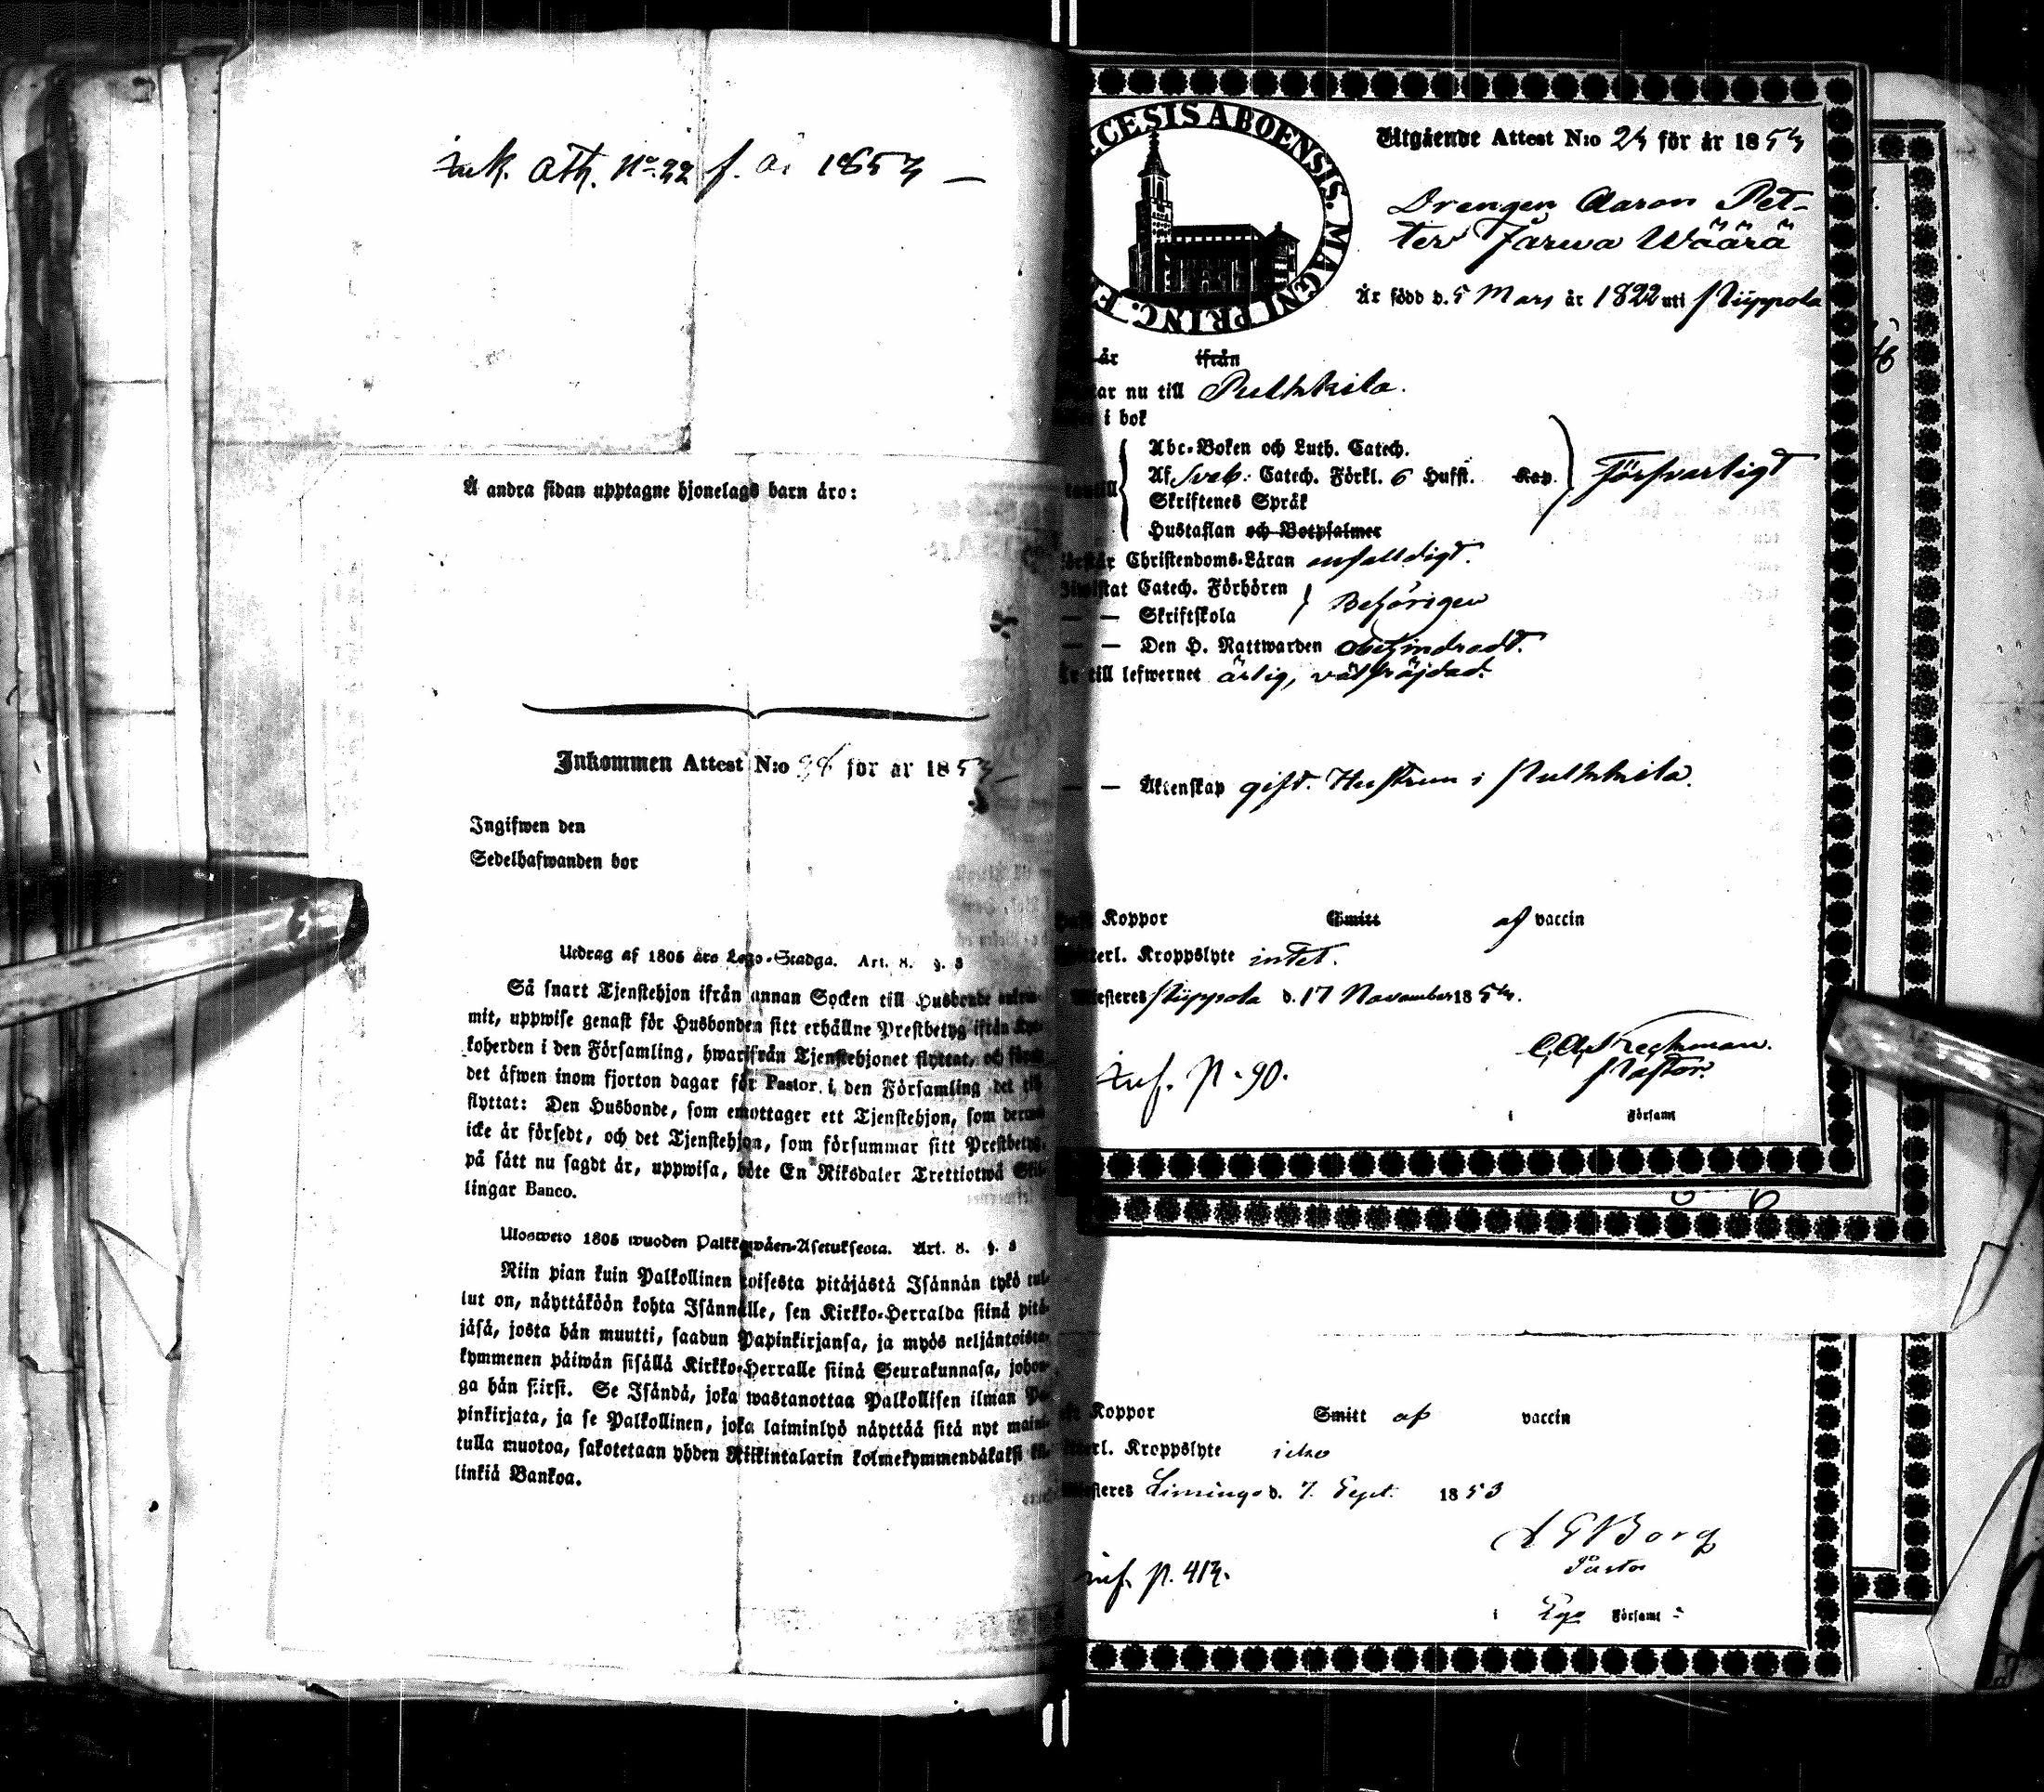 Ink. Att. No 22 f. år 1854 —
Å andra sidan upptagne hjonelags barn äro:
Inkommen Attest N:o för år 1854
Ingifwen den
Sedelhafwanden bor
Utdrag af 1805 års Lego-Stadga. Art. 8. §. 3
Så snart Tjenstehjon ifrån annan Socken till Husbonde
mit, uppwise genast för Husbonden sitt erhållne Prestbetyg ifrån Kyr-
koherden i den Församling, hwarifrån Tjenstehjonet flyttat, och
det äfwen inom fjorton dagar för Pastor i den Församling det till
flyttat: Den Husbonde, som emottager ett Tjenstehjon, som
icke är försedt, och det Tjenstehjon, som försummar sitt Prestbetyg,
på sätt nu sagdt är, uppwisa, böte En Riksdaler Trettiotwå Skil-
lingar Banco.
Ulosweto 1805 wuoden Palkkawäen-Asetuksesta. Art. 8. §. 3
Niin pian kuin Palkollinen toisesta pitäjästä Isännän tykö tul-
lut on, näyttäköön kohta Isännälle, sen Kirkko-Herralda siinä pitä-
jäsä, josta hän muutti, saadun Papinkirjansa, ja myös neljäntoista-
kymmenen päiwän sisällä Kirkko-Herralle siinä Seurakunnasa, johon-
ga hän siirst. Se Isändä, joka wastanottaa Palkollisen ilman Pa-
pinkirjata, ja se Palkollinen, joka laiminlyö näyttää sitä nyt maini-
tulla muotoa, sakotetaan yhden Riikintalarin kolmekymmendäkaksi kil-
linkiä Bankoa.
CESIS ABOENSIS. MAGNI PRINC. F
Utgående Attest N:o 24 för år 1854
Drengen Aaron Pet-
ter Järwa Wäärä
Är född d. 5 Mars år 1822 uti Piippola
år ifrån
nu till Pulkkila.
i bok
Abc-Boken och Luth. Catech.
Af Sveb. Catech. Förkl. 6 Hufst. Kap. Försvarligt
Skriftenes Språk
Hustaflan och Botpsalmer
Förstår Christendoms-Läran enfalldigt.
Biwistat Catech. Förhören Behörigen
— — Skriftskola
— — Den H. Nattwarden Obehindradt.
Är till lefwernet ärlig, välfräjdad.
— — Äktenskap gift. Hustrun i Pulkkila.
Haft Koppor Smitt af vaccin
Kroppslyte intet.
Piippola d. 17 November 1854.
Pastor.
Inf. p. 90.
i Församl
Koppor Smitt af vaccin
Kroppslyte icke
Limingo d. 7. Sept. 1853
Borg
Pastor
inf. p. 414.
i Församl